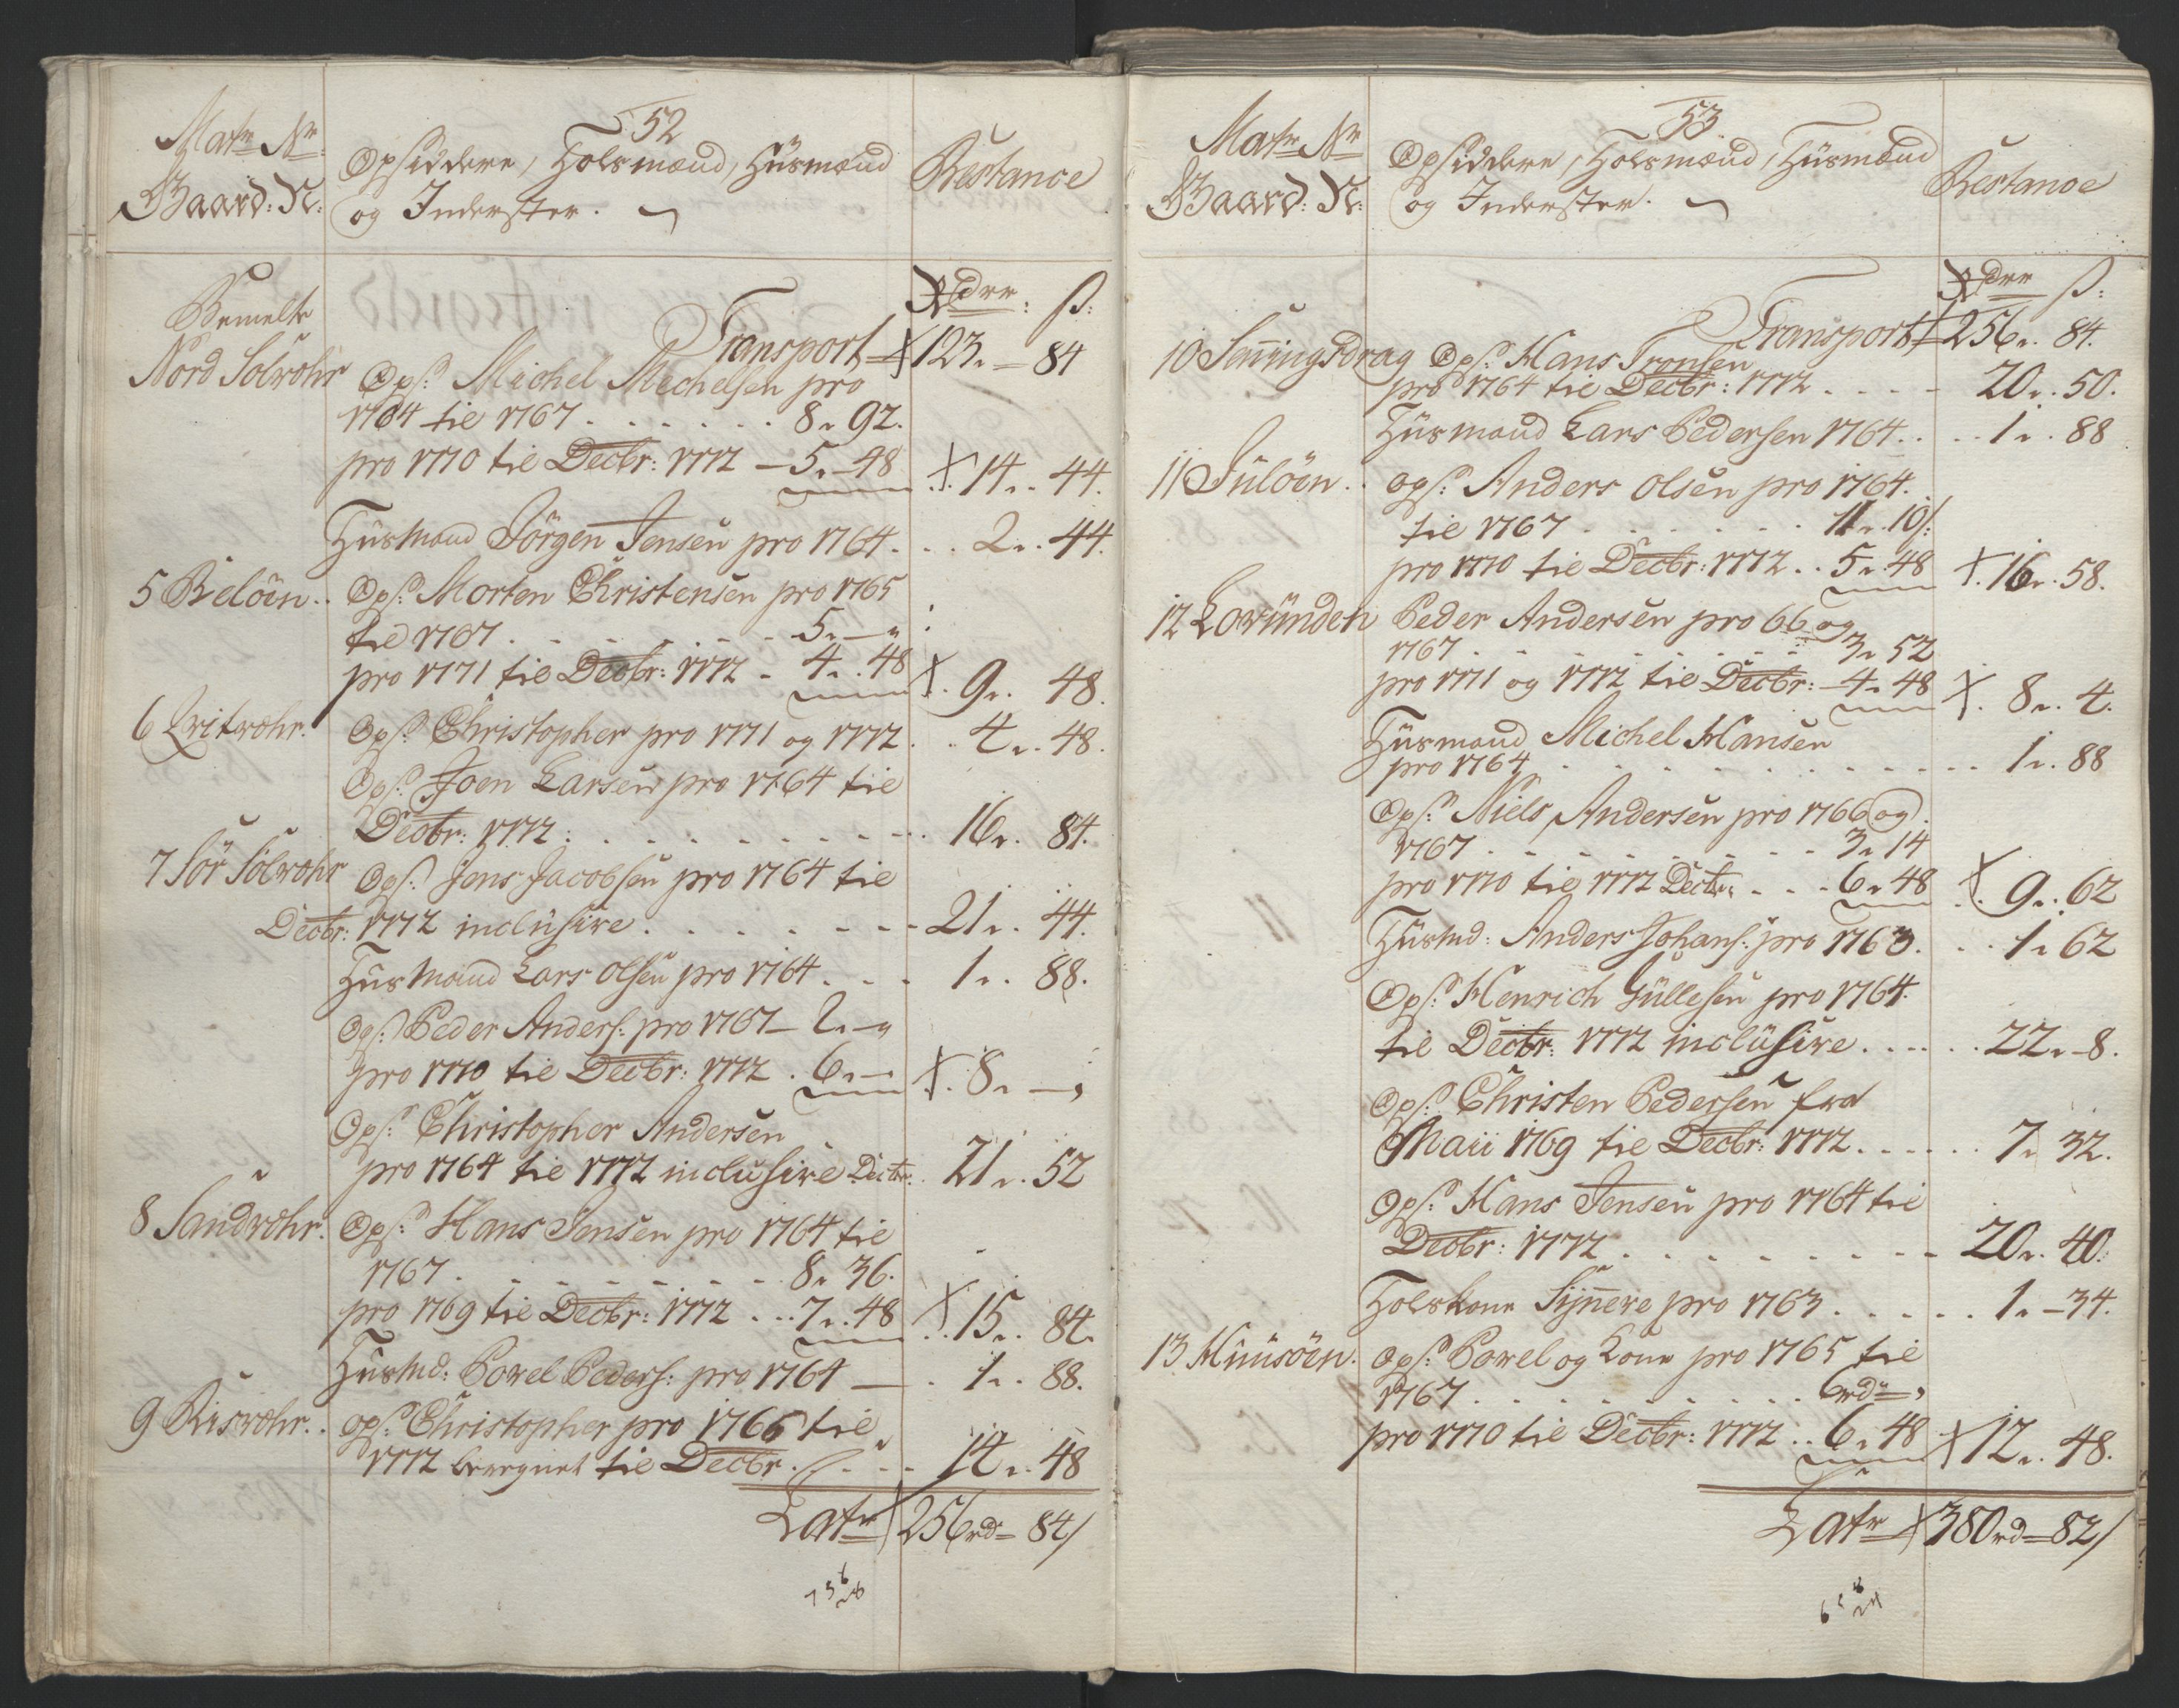 52
Matr No:
Gaard: N:
Opsiddere, Folsmænd, Huusmænd
og Inderster.
Restance
Rdr: ß:
Transport 123 „ 84
Bemelte
Nord Solvær Ops: Michel Michelsen pro
1764 til 1767 . . . . . . 8 „ 92.
pro 1770 til Decbr: 1772 – 5 „ 48 14 „ 44.
Huusmand Jörgen Jensen pro 1764 . . . 2 „ 44.
5 Belöen . . Ops: Morten Christensen pro 1765
til 1767 . . . . . . . 5 „ – „
pro 1771 til Decbr: 1772 – 4 „ 48 9 „ 48.
6 Qvitvær. Ops: Christopher pro 1771 og 1772 . . 4 „ 48.
Ops: Joen Larsen pro 1764 til
Decbr: 1772: . . . . . . . . . 16 „ 84.
7 Sör Solvær Ops: Jens Jacobsen pro 1764 til
Decbr: 1772 inclusive . . . . . . . 21 „ 44.
Huusmand Lars Olsen pro 1764 . . . 1 „ 88.
Ops: Peder Anders: pro 1767 – 2 „ – „
pro 1770 til Decbr: 1772 . 6 „ – 8 „ – „
Ops: Christopher Andersen
pro 1764 til 1772 inclusive Decbr: . 21 „ 52
8 Sandvær. Ops: Hans Jensen pro 1764 til
1767 . . . . . . . . 8 „ 36.
pro 1769 til Decbr: 1772 . . . 7 „ 48 15 „ 84.
Huusmd: Povel Peders: pro 1764 – . 1 „ 88.
9 Risvær . . Ops: Christopher pro 1766 til
1772 beregnet til Decbr. . . . . 14 „ 48
Latr 256 rd – 84 ß
53.
Matr No
Gaard: N:
Opsiddere, Folsmænd, Huusmænd
og Inderster.
Restance
Rdr ß:
Transport 256 „ 84.
10 Senningsdrag Ops: Hans Tronsen
pro 1764 til Decbr: 1772 . . . . 20 „ 50.
Huusmand Lars Pedersen 1764 . . . . 1 „ 88
11 Suløen . . Ops: Anders Olsen pro 1764.
til 1767 . . . . . . . 11 „ 10 ß:
pro 1770 til Decbr: 1772 . . 5 „ 48 16 „ 58.
12 Lovunden Peder Andersen pro 66 og
1767 . . . . . . . . 3 „ 52
pro 1771 og 1772 til Decbr: – 4 „ 48 8 „ 4.
Huusmand Michel Hansen
pro 1764 . . . . . . . . . . . 1 „ 88
Ops: Niels Andersen pro 1766 og
1767 . . . . . . . . 3 „ 14
pro 1770 til 1772 Decbr: . . . 6 „ 48 9 „ 62
Huusmd: Anders Johans: pro 1763. . . 1 „ 62
Ops: Henrich Güllesen pro 1764.
til Decbr: 1772 inclusive . . . . . 22 „ 8.
Ops: Christen Pedersen fra
Maii 1769 til Decbr: 1772 . . . . . . 7 „ 32.
Ops: Hans Jensen pro 1764 til
Decbr: 1772 . . . . . . . . . 20 „ 40.
Folskone Synneve pro 1763 . . . . . . 1 „ 34.
13 Huusöen. Ops: Povel og Kone pro 1765 til
1767 . . . . . . . . . . 6 rd – „
pro 1770 til Decbr: 1772 . . 6 „ 48 12 „ 48.
Latr 380 rd – 82 ß